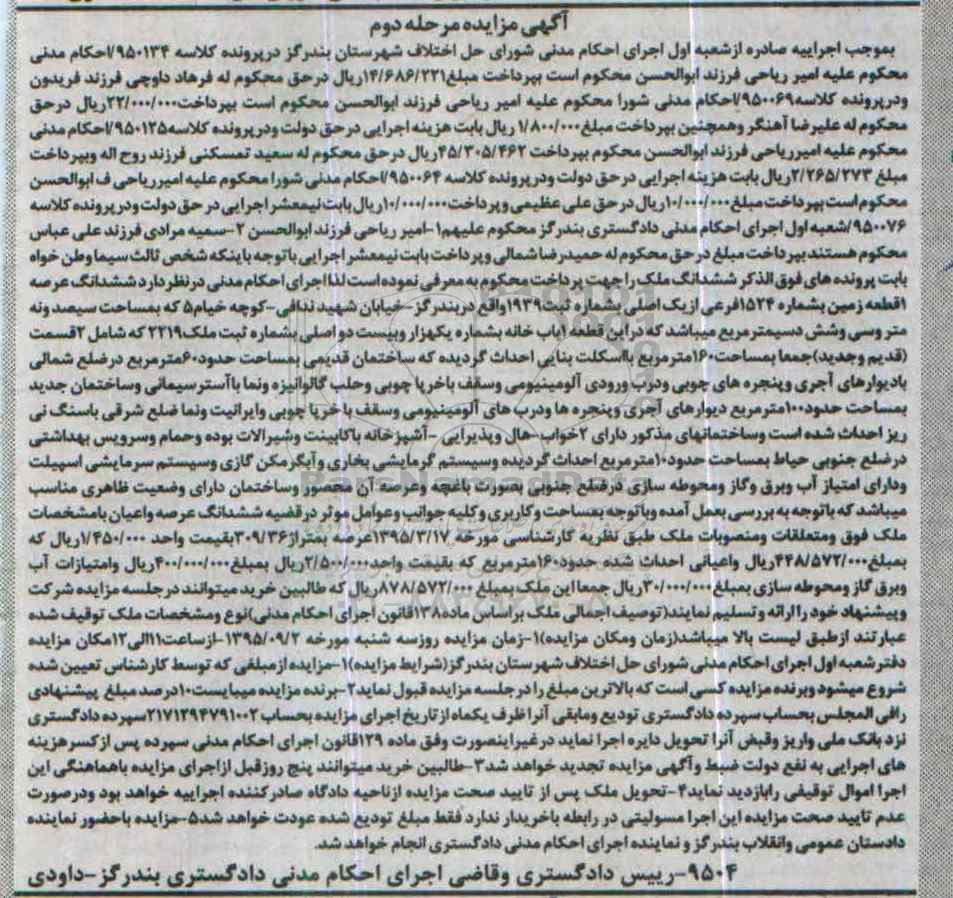 آگهی مزایده مرحله دوم
بموجب اجراییه صادره ازشعبه اول اجرای احکام مدنی شورای حل اختلاف شهرستان بندرگز درپرونده کلاسه ۹۵۰۱۳۴/احکام مدنی
محکوم علیه امیر ریاحی فرزند ابوالحسن محکوم است بپرداخت مبلغ۱۴/۶۸۶/۲۲۱ریال درحق محکوم له فرهاد داوچی فرزند فریدون
ودرپرونده کلاسه۹۵۰۰۶۹/احکام مدنی شورا محکوم علیه امیر ریاحی فرزند ابوالحسن محکوم است بپرداخت۲۲/۰۰۰/۰۰۰ریال درحق
محکوم له علیرضا آهنگر وهمچنین بپرداخت مبلغ۱/۸۰۰/۰۰۰ ریال بابت هزینه اجرایی درحق دولت ودرپرونده کلاسه۹۵۰۱۲۵/احکام مدنی
محکوم علیه امیرریاحی فرزند ابوالحسن محکوم بپرداخت ۴۵/۳۰۵/۴۶۲ریال درحق محکوم له سعید تمسکنی فرزند روح اله وبپرداخت
مبلغ ۲/۲۶۵/۲۷۳ریال بابت هزینه اجرایی درحق دولت ودرپرونده کلاسه ۹۵۰۰۶۴/احکام مدنی شورا محکوم علیه امیرریاحی ف ابوالحسن
محکوم است بپرداخت مبلغ۱۰/۰۰۰/۰۰۰ریال درحق علی عظیمی وپرداخت۱۰/۰۰۰/۰۰۰ریال بابت نیمعشر اجرایی در حق دولت ودرپرونده کلاسه
۹۵۰۰۷۶/شعبه اول اجرای احکام مدنی دادگستری بندرگز محکوم علیهم۱-امیر ریاحی فرزند ابوالحسن ۲-سمیه مرادی فرزند علی عباس
محکوم هستند بپرداخت مبلغ درحق محکوم له حمیدرضا شمالی وپرداخت بابت نیمعشر اجرایی باتوجه باینکه شخص ثالث سیما وطن خواه
بابت پرونده های فوق الذکر ششدانگ ملک را جهت پرداخت محکوم به معرفی نموده است لذا اجرای احکام مدنی درنظردارد ششدانگ عرصه
۱قطعه زمین بشماره ۱۵۲۴فرعی ازیک اصلی بشماره ثبت۱۹۳۹واقع دربندرگز-خیابان شهید ندافی-کوچه خیام۵ که بمساحت سیصد ونه
متر وسی وشش دسیمترمربع میباشد که دراین قطعه ۱باب خانه بشماره یکهزار وبیست دو اصلی بشماره ثبت ملک۲۲۱۹ که شامل ۲قسمت
(قدیم وجدید)جمعا بمساحت۱۶۰مترمربع بااسکلت بنایی احداث گردیده که ساختمان قدیمی بمساحت حدود۶۰مترمربع درضلع شمالی
بادیوارهای آجری وپنجره های چوبی ودرب ورودی آلومینیومی وسقف باخرپا چوبی وحلب گالوانیزه ونما باآسترسیمانی وساختمان جدید
بمساحت حدود۱۰۰مترمربع دیوارهای آجری وپنجره ها ودرب های آلومینیومی وسقف باخرپا چوبی وایرانیت ونما ضلع شرقی باسنگ نی
ریز احداث شده است وساختمانهای مذکور دارای ۲خواب-هال وپذیرایی -آشپزخانه باکابینت وشیرالات بوده وحمام وسرویس بهداشتی
درضلع جنوبی حیاط بمساحت حدود۱۰مترمربع احداث گردیده وسیستم گرمایشی بخاری وآبگرمکن گازی وسیستم سرمایشی اسپیلت
ودارای امتیاز آب وبرق وگاز ومحوطه سازی درضلع جنوبی بصورت باغچه وعرصه آن محصور وساختمان دارای وضعیت ظاهری مناسب
میباشد که باتوجه به بررسی بعمل آمده وباتوجه بمساحت وکاربری وکلیه جوانب وعوامل موثر درقضیه ششدانگ عرصه واعیان بامشخصات
ملک فوق ومتعلقات ومنصوبات ملک طبق نظریه کارشناسی مورخه ۱۳۹۵/۳/۱۷عرصه بمتراژ۳۰۹/۳۶بقیمت واحد ۱/۴۵۰/۰۰۰ریال که
بمبلغ۴۴۸/۵۷۲/۰۰۰ریال واعیانی احداث شده حدود۱۶۰مترمربع که بقیمت واحد۲/۵۰۰/۰۰۰ریال بمبلغ۴۰۰/۰۰۰/۰۰۰ریال وامتیازات آب
وبرق گاز ومحوطه سازی بمبلغ۳۰/۰۰۰/۰۰۰ریال جمعا این ملک بمبلغ ۸۷۸/۵۷۲/۰۰۰ریال که طالبین خرید میتوانند درجلسه مزایده شرکت
وپیشنهاد خود را ارائه وتسلیم نمایند(توصیف اجمالی ملک براساس ماده۱۳۸قانون اجرای احکام مدنی)نوع ومشخصات ملک توقیف شده
عبارتند ازطبق لیست بالا میباشد(زمان ومکان مزایده)۱-زمان مزایده روزسه شنبه مورخه ۱۳۹۵/۰۹/۲-ازساعت۱۱الی۱۲مکان مزایده
دفترشعبه اول اجرای احکام مدنی شورای حل اختلاف شهرستان بندرگز(شرایط مزایده)۱-مزایده ازمبلغی که توسط کارشناس تعیین شده
شروع میشود وبرنده مزایده کسی است که بالاترین مبلغ را درجلسه مزایده قبول نماید۲-برنده مزایده میبایست۱۰درصد مبلغ پیشنهادی
رافی المجلس بحساب سپرده دادگستری تودیع ومابقی آنرا ظرف یکماه ازتاریخ اجرای مزایده بحساب ۲۱۷۱۲۹۴۷۹۱۰۰۲سپرده دادگستری
نزد بانک ملی واریز وقبض آنرا تحویل دایره اجرا نماید درغیراینصورت وفق ماده ۱۲۹قانون اجرای احکام مدنی سپرده پس ازکسرهزینه
های اجرایی به نفع دولت ضبط وآگهی مزایده تجدید خواهد شد۳-طالبین خرید میتوانند پنج روزقبل ازاجرای مزایده باهماهنگی این
اجرا اموال توقیفی رابازدید نماید۴-تحویل ملک پس از تایید صحت مزایده ازناحیه دادگاه صادرکننده اجراییه خواهد بود ودرصورت
عدم تایید صحت مزایده این اجرا مسولیتی در رابطه باخریدار ندارد فقط مبلغ تودیع شده عودت خواهد شد۵-مزایده باحضور نماینده
دادستان عمومی وانقلاب بندرگز و نماینده اجرای احکام مدنی دادگستری انجام خواهد شد.
۹۵۰۴-رییس دادگستری وقاضی اجرای احکام مدنی دادگستری بندرگز-داودی